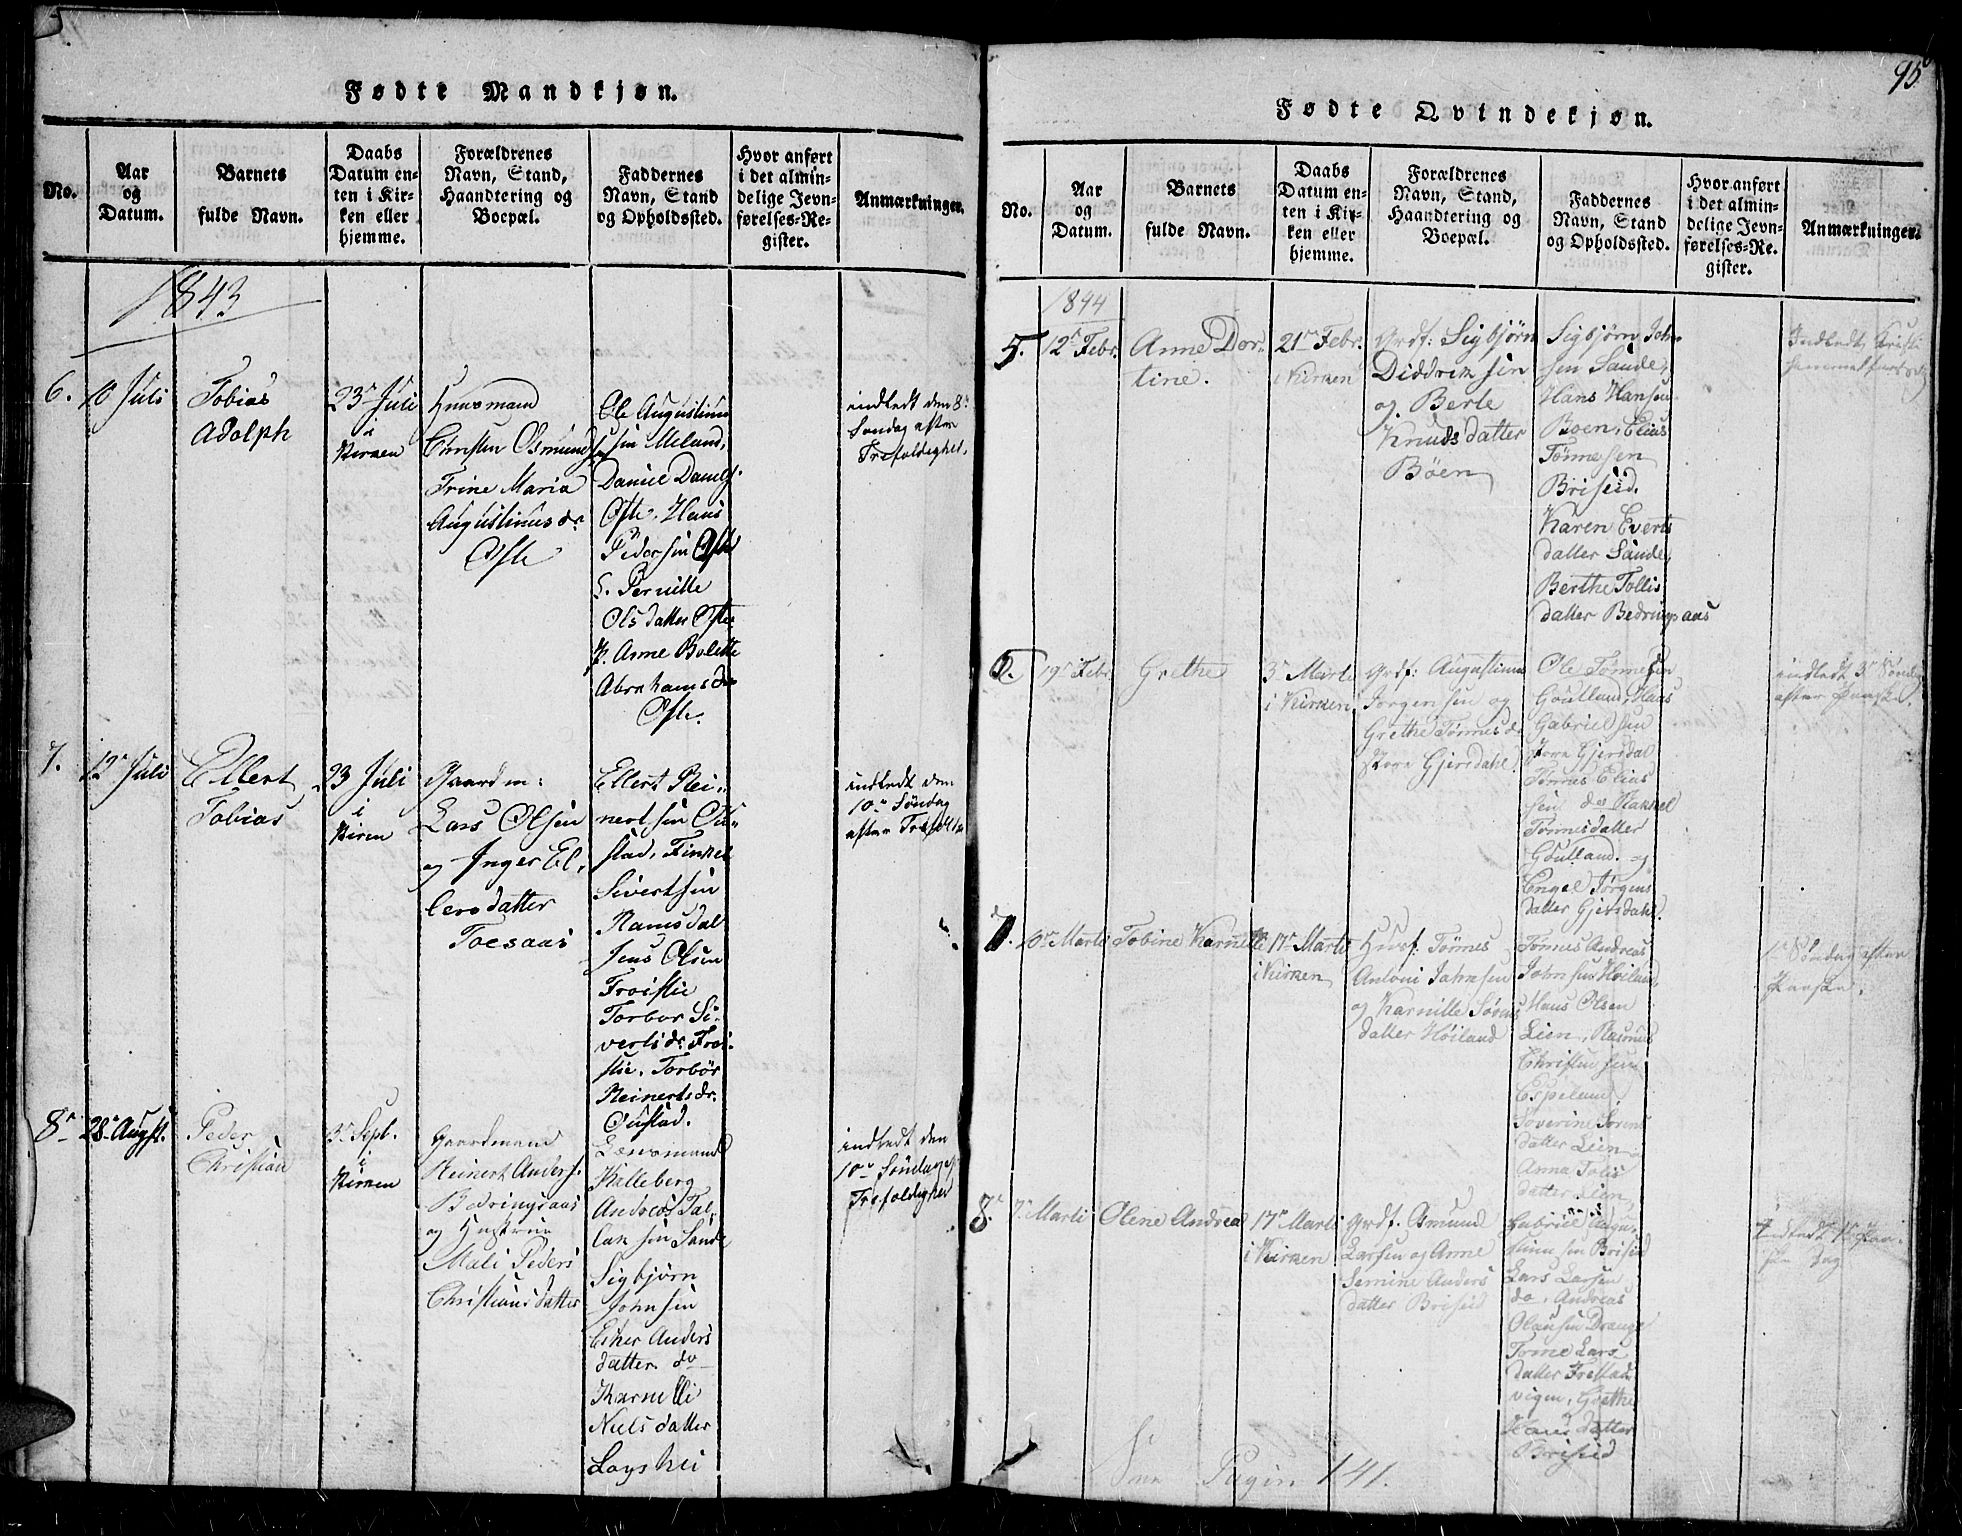 Fødte Mandkjøn.
No.
Aar
og
Datum.
Barnets
fulde Navn.
Daabs
Datum en-
ten i Kir-
ken eller
hjemme.
Forældrenes
Navn, Stand,
Haandtering og
Boepæl.
Faddernes
Navn, Stand
og Opholdssted.
Hvor anført
i det almin-
delige Jevn-
førelses-Re-
gister.
Anmærkninger.
1843
6.
10 Juli
Tobias
Adolph
23de Juli
i
Kirken
Huusmand
Christen Osmunds
Trine Maria
Augustinusdr
Ofte
Ole Augustinus
sen Meland,
Daniel Daniels.
Ofte, Hans
Pedersen Ofte
Pernille
Olsdatter Ofte
P. Anne Bolette
Abrahamsdr
Ofte.
indledt den 8de
Søndag efter
Trefoldighet.
7.
12te Juli
Ellert
Tobias
23 Juli
i
Kirken
Gaardm:
Lars Olsen
og Inger El-
lersdatter
Toesaas
Ellert Rei-
nertsen Ou-
stad, Finkel
Sivertsen
Ramsdal
Jens Olsen
Froistie
Torbor Si-
vertsdr. Froi-
stie, Torbør
Reinertsdr.
Oustad.
indledt den
10de Søndag
efter Trefold
8de
28de Augst.
Peder
Christian
3de Sept.
i
Kirken
Gaardmand
Reinert Anders.
Bedringsaas
og Hustrue
Mali Peders
Christiansdatter
Lensmand
Kalleberg
Andreas Tal-
laksen Sande
Sigbjørn
Johnsen
Esther Anders
datter do
Karnelli
Nielsdatter
indledt den
10de Søndag ef
Trefoldighed
95
Fødte Qvindekjøn.
No.
Aar
og
Datum.
Barnets
fulde Navn.
Daabs
Datum en-
ten i Kir-
ken eller
hjemme.
Forældrenes
Navn, Stand,
Haandtering og
Boepæl.
Faddernes
Navn, Stand
og Opholdssted.
Hvor anført
i det almin-
delige Jevn-
førelses-Re-
gister.
Anmærkninger.
1844
5.
12te Febr.
Anne Dor-
tine.
21de Febr.
i Kirken
Grdf: Sigbjørn
Diddriksen
og Berte
Knudsdatter
Böen
Sigbjørn John-
sen Sande,
Hans Hansen
Boen, Elias
Tønnesen
Briseid.
Karen Everts
datter Sande,
Berthe Tollis
datter Bedringsaas
19de Febr
Grethe
3de Marti
i Kirken
Grdf: Augustinus
Jørgensen og
Grethe Tønnesdr
store Gjersdahl
Ole Tønnesen
Goulland, Hans
Gabrielsen
store Gjersdal
Tønnes Elias
sen do Rakkel
Tønnesdatter
Goulland. og
Engel Jørgens
datter Gjersdahl.
indledt 3de Søndag
efter Paaske.
7.
10de Marti
Tobine Karnille
17de Marti
i Kirken
Husf: Tønnes
Antoni Johnsen
og Karnille Sørens
datter Høiland
Tønnes Andreas
Johnsen Høiland,
Hans Olsen
Lien, Rasmus
Christensen
Espeland,
Soverine Sorens
datter Lien
Anna Tolis
datter Lien
1ste Søndag efter
Paaske.
8de
7de Marti
Olene Andrea
17de Marti
i Kirken
Grdf. Osmund
Larsen og Anne
Semine Anders
datter Briseid
Gabriel Augu-
stinusen Briseid
Lars Larsen
do. Andreas
Olausen Drange
Torne Lars
datter Frestad
vigen, Grethe
Hansdatter
Briseid
Indledt 1ste Paa-
ske Dag
See Pagin 141.